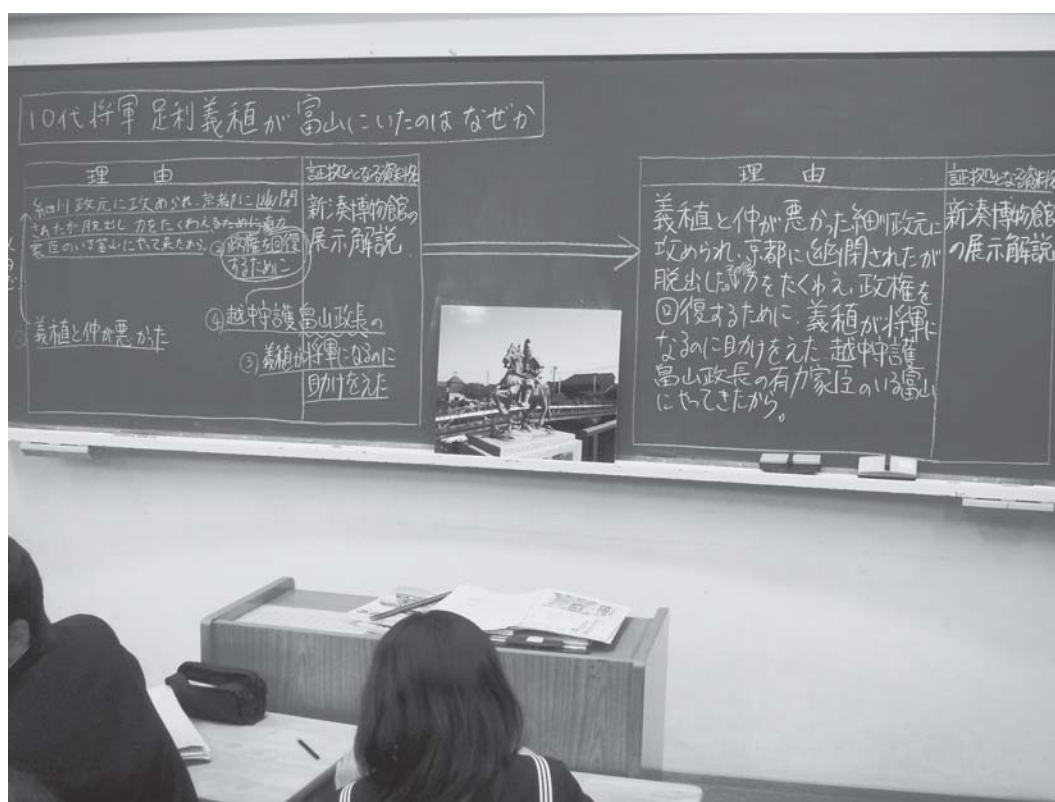 10代将軍 足利義稙が富山にいたのはなぜか
理由
証拠となる資料名
細川政元に攻められ、京都に幽閉
されたが脱出し 力をたくわえるために有力
家臣のいる富山にやって来たから。
政権を回復
するために
新湊博物館の
展示解説
義稙と仲が悪かった
④越中守護畠山政長の
③義稙が将軍になるのに
助けをえた
理由
証拠となる資料名
義稙と仲が悪かった細川政元に
攻められ、京都に幽閉されたが
脱出した。力をたくわえ、政権を
回復するために、義稙が将軍に
なるのに助けをえた 越中守護
畠山政長の有力家臣のいる富山
にやってきたから。
新湊博物館
の展示解説